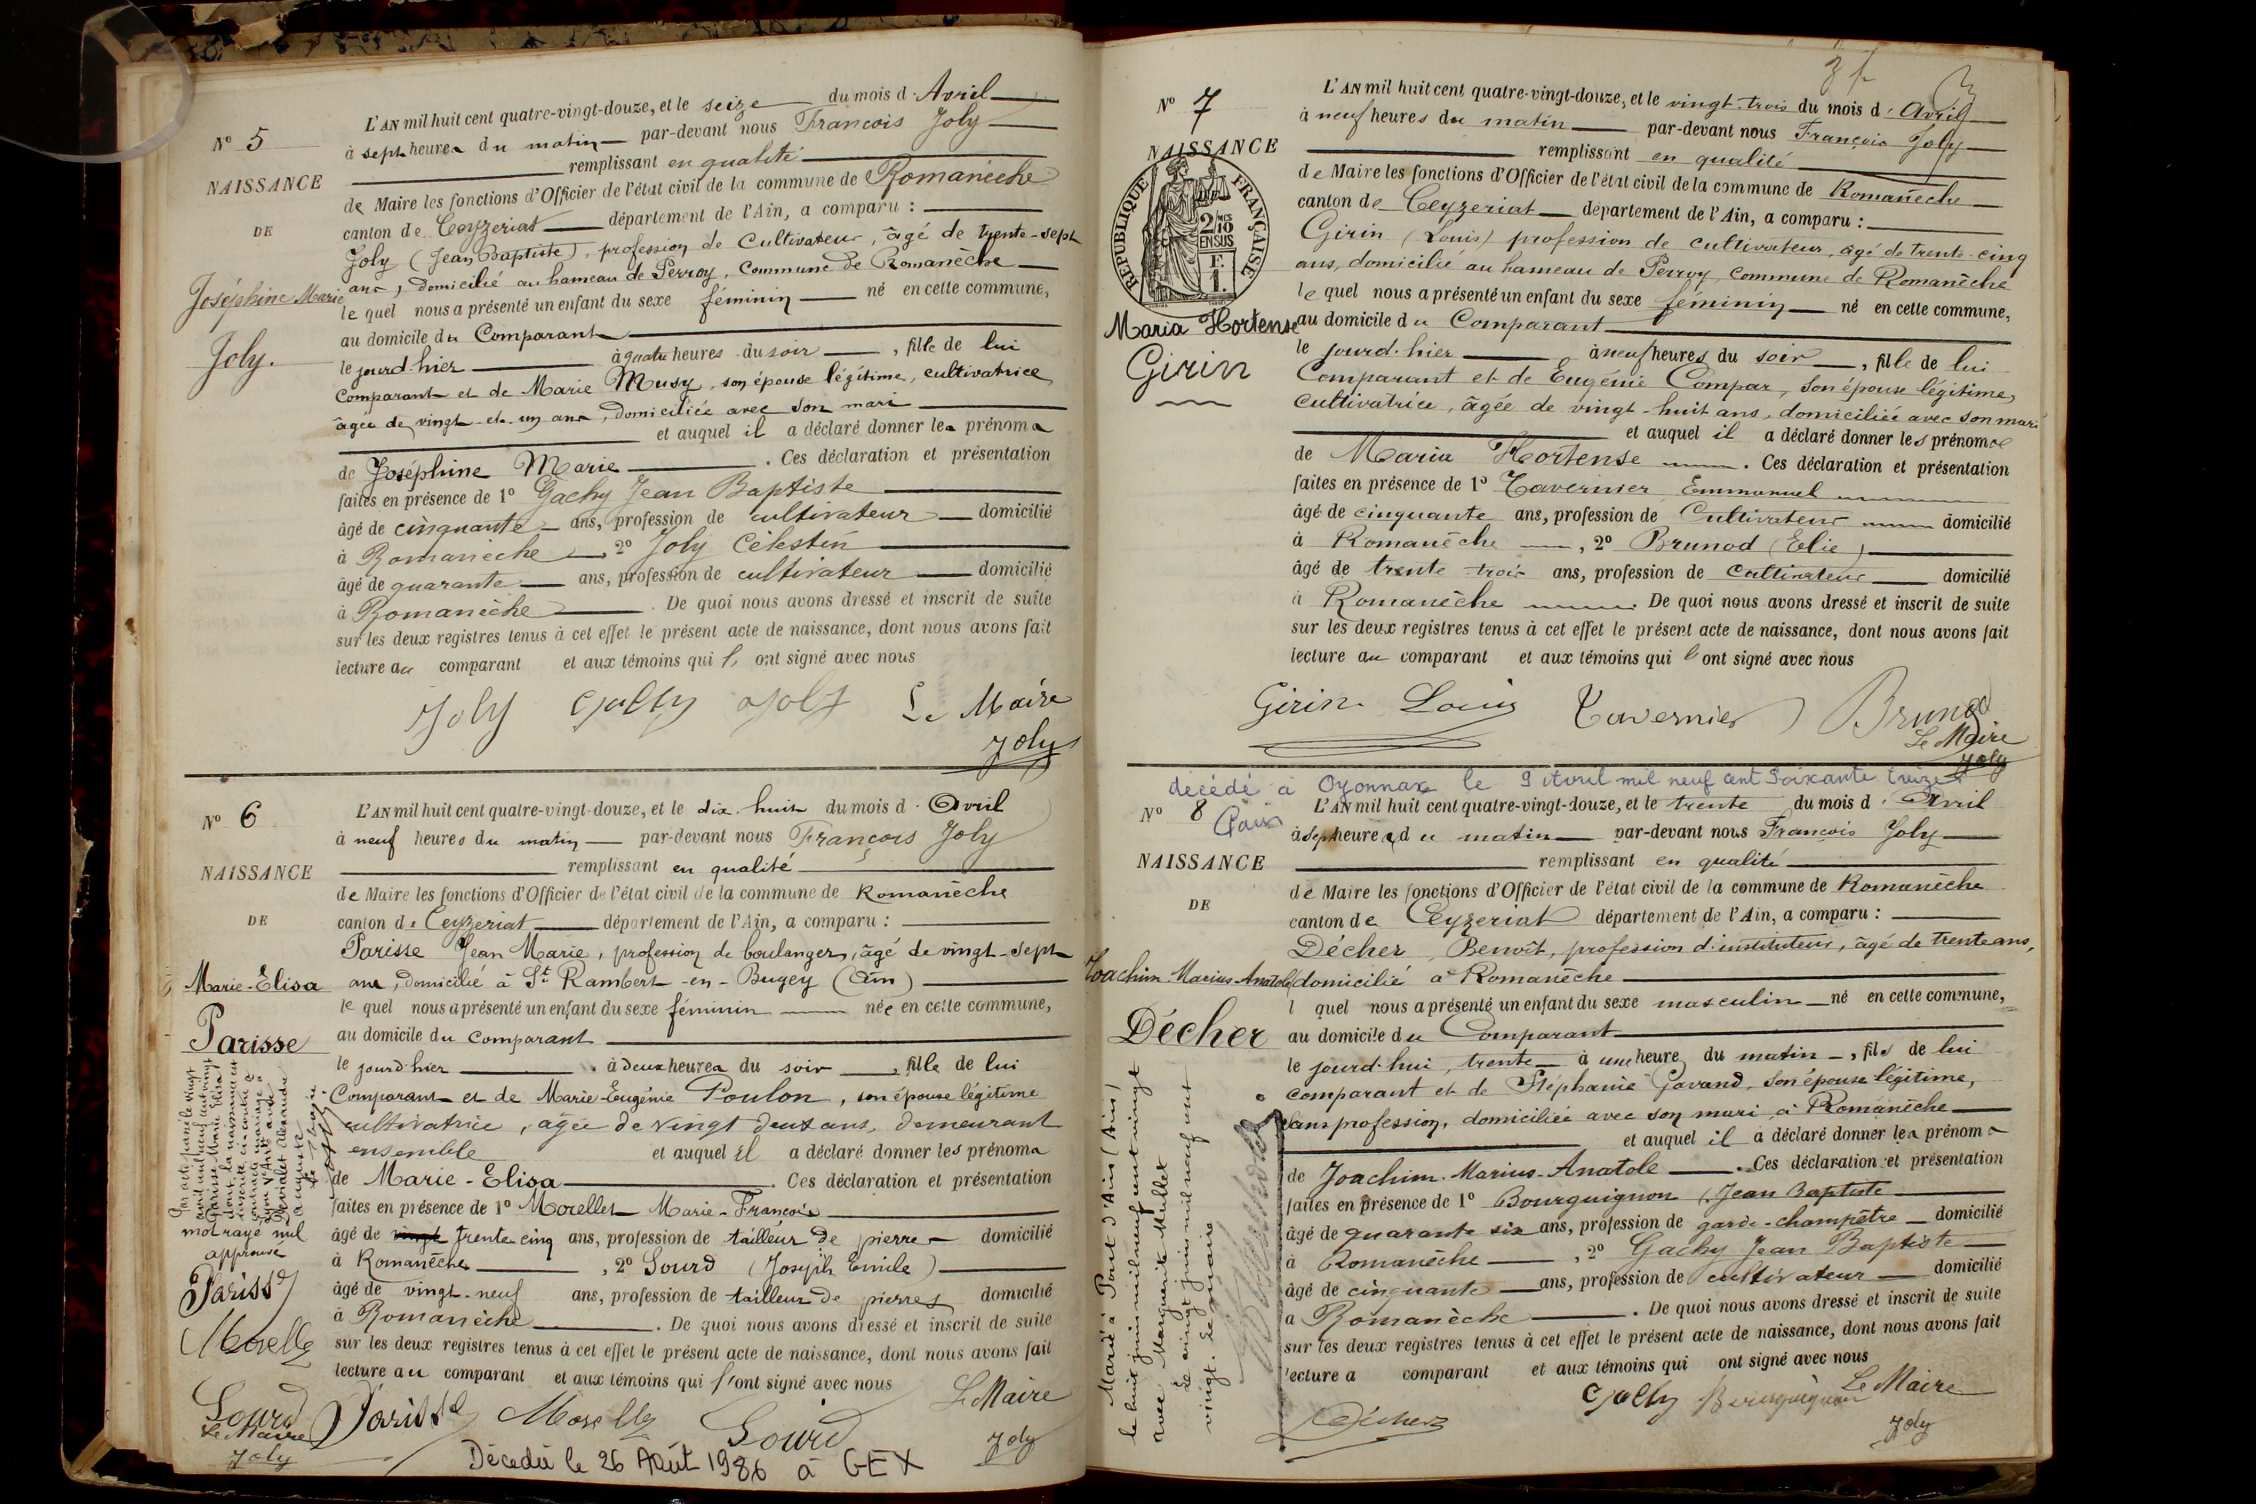 N° 5
NAISSANCE
DE
Joséphine Marie
Joly.
L'AN mil huit cent quatre-vingt-douze, et le seize du mois d'Avril
à sept heures du matin par-devant nous François Joly
remplissant en qualité
de Maire les fonctions d'Officier de l'état civil de la commune de Romanèche
canton de Ceyzeriat département de l'Ain, a comparu :
Joly (Jean Baptiste), profession de Cultivateur, âgé de trente-sept
ans, domicilié au hameau de Perroy, Commune de Romanèche
le quel nous a présenté un enfant du sexe féminin né en cette commune,
au domicile du Comparant
le jourd'hier à quatre heures du soir, fille de lui
Comparant et de Marie Musy, son épouse légitime, cultivatrice
âgée de vingt et un ans, domiciliée avec son mari
et auquel il a déclaré donner les prénoms
de Joséphine Marie. Ces déclaration et présentation
faites en présence de 1° Gachy Jean Baptiste
âgé de cinquante ans, profession de cultivateur domicilié
à Romanèche, 2° Joly Célestin
âgé de quarante ans, profession de cultivateur domicilié
à Romanèche. De quoi nous avons dressé et inscrit de suite
sur les deux registres tenus à cet effet le présent acte de naissance, dont nous avons fait
lecture au comparant et aux témoins qui l' ont signé avec nous
Joly Gachy Joly Le Maire
Joly
N° 6
NAISSANCE
DE
Marie-Elisa
Parisse
L'AN mil huit cent quatre-vingt-douze, et le dix-huit du mois d'Avril
à neuf heures du matin par-devant nous François Joly
remplissant en qualité
de Maire les fonctions d'Officier de l'état civil de la commune de Romanèche
canton de Ceyzeriat département de l'Ain, a comparu :
Parisse Jean Marie, profession de boulanger, âgé de vingt-sept
ans, domicilié à St Rambert-en-Bugey (Ain)
le quel nous a présenté un enfant du sexe féminin née en cette commune,
au domicile du comparant
le jourd'hier à deux heures du soir, fille de lui
Comparant et de Marie-Eugénie Poulon, son épouse légitime
cultivatrice, âgée de vingt deux ans, demeurant
ensemble et auquel il a déclaré donner les prénoms
de Marie-Elisa. Ces déclaration et présentation
faites en présence de 1° Morellet Marie-François
âgé de vingt trente cinq ans, profession de tailleur de pierre domicilié
à Romanèche, 2° Gourd (Joseph Emile)
âgé de vingt-neuf ans, profession de tailleur de pierres domicilié
à Romanèche. De quoi nous avons dressé et inscrit de suite
sur les deux registres tenus à cet effet le présent acte de naissance, dont nous avons fait
lecture au comparant et aux témoins qui l'ont signé avec nous
mot rayé nul
approuvé
Parisse
Morellet
Gourd
Le Maire
Joly
Parisse Morellet Gourd
Le Maire
Joly
Décédée le 26 Août 1986 à GEX
N° 7
NAISSANCE
RÉPUBLIQUE FRANÇAISE
2/10 EN SUS
F.
1.
Maria Hortense
Girin
L'AN mil huit cent quatre-vingt-douze, et le vingt-trois du mois d'Avril
à neuf heures du matin par-devant nous François Joly
remplissant en qualité
de Maire les fonctions d'Officier de l'état civil de la commune de Romanèche
canton de Ceyzeriat département de l'Ain, a comparu :
Girin (Louis) profession de cultivateur, âgé de trente-cinq
ans, domicilié au hameau de Perroy, Commune de Romanèche
le quel nous a présenté un enfant du sexe féminin né en cette commune,
au domicile du Comparant
le jourd'hier à neuf heures du soir, fille de lui
Comparant et de Eugénie Compar, son épouse légitime,
cultivatrice, âgée de vingt-huit ans, domiciliée avec son mari
et auquel il a déclaré donner les prénoms
de Maria Hortense. Ces déclaration et présentation
faites en présence de 1° Tavernier Emmanuel
âgé de cinquante ans, profession de Cultivateur domicilié
à Romanèche, 2° Brunod (Elie)
âgé de trente trois ans, profession de Cultivateur domicilié
à Romanèche. De quoi nous avons dressé et inscrit de suite
sur les deux registres tenus à cet effet le présent acte de naissance, dont nous avons fait
lecture au comparant et aux témoins qui l'ont signé avec nous
Girin Louis Tavernier Brunod
Le Maire
Joly
décédé à Oyonnax le 9 Avril mil neuf cent soixante treize
N° 8
NAISSANCE
DE
Joachim Marius-Anatole
Décher
L'AN mil huit cent quatre-vingt-douze, et le trente du mois d'Avril
à sept heures du matin par-devant nous François Joly
remplissant en qualité
de Maire les fonctions d'Officier de l'état civil de la commune de Romanèche
canton de Ceyzeriat département de l'Ain, a comparu :
Décher Benoît, profession d'instituteur, âgé de trente ans,
domicilié à Romanèche
l quel nous a présenté un enfant du sexe masculin né en cette commune,
au domicile du Comparant
le jourd'hui, trente à une heure du matin, fils de lui
comparant et de Stéphanie Gavand, son épouse légitime,
sans profession, domiciliée avec son mari à Romanèche
et auquel il a déclaré donner les prénoms
de Joachim-Marius-Anatole. Ces déclaration et présentation
faites en présence de 1° Bourguignon (Jean Baptiste
âgé de quarante six ans, profession de garde-champêtre domicilié
à Romanèche, 2° Gachy Jean Baptiste
âgé de cinquante ans, profession de cultivateur domicilié
à Romanèche. De quoi nous avons dressé et inscrit de suite
sur les deux registres tenus à cet effet le présent acte de naissance, dont nous avons fait
lecture a comparant et aux témoins qui ont signé avec nous
Décher Gachy Bourguignon Le Maire
Joly
Marié à Pont d'Ain (Ain)
le huit juin mil neuf cent vingt
avec Marguerite Mullet
Le vingt juin mil neuf cent
vingt. Le maire